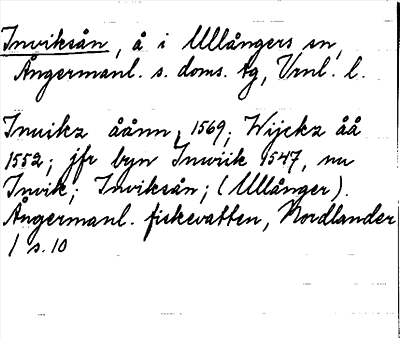 Inviksån, å i Ullångers sn,
Ångermanl. s. doms. tg, Vrnl. l.
Inuikz åånn 1569; Wijckz åå
1552; jfr byn Inwiik 1547, nu
Invik; Inviksån; (Ullånger).
Ångermanl. fiskevatten, Nordlander
/ s. 10